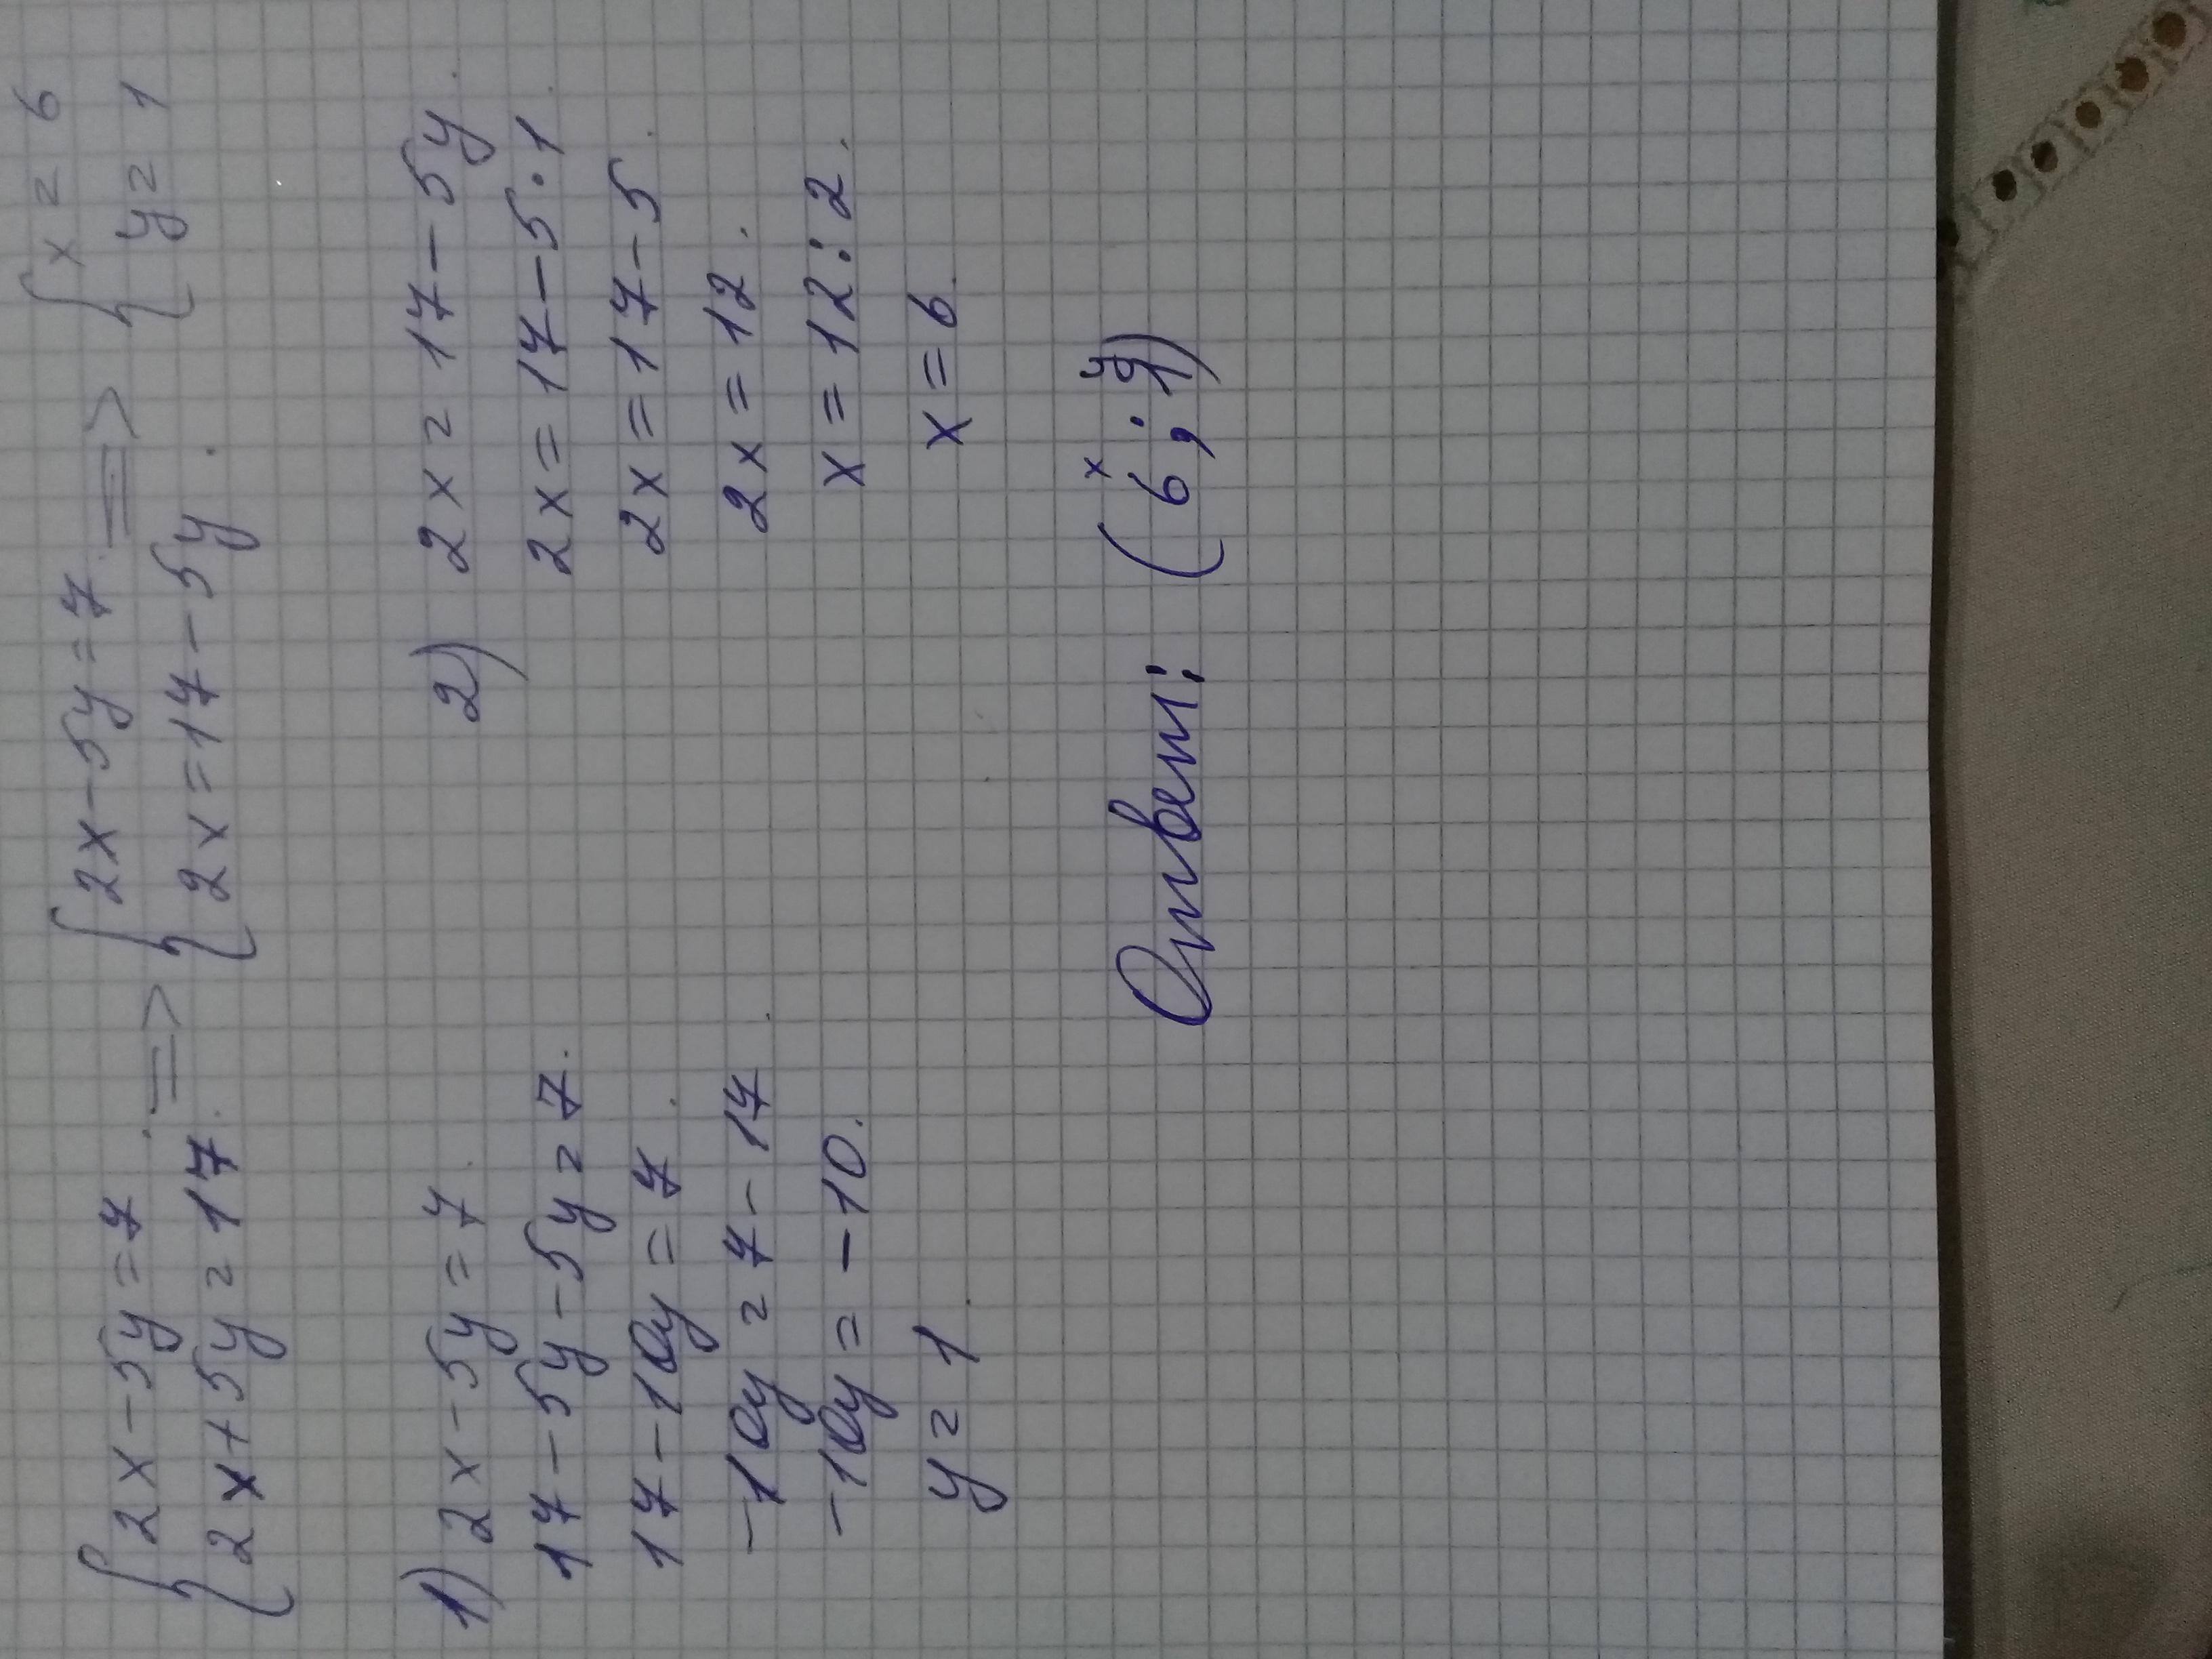 { 2x - 5y = 7 . => { 2x - 5y = 7 . => { x = 6
{ 2x + 5y = 17 . { 2x = 17 - 5y . { y = 1
1) 2x - 5y = 7 .
17 - 5y - 5y = 7 .
17 - 10y = 7 .
-10y = 7 - 17 .
-10y = -10 .
y = 1 .
2) 2x = 17 - 5y .
2x = 17 - 5 · 1 .
2x = 17 - 5 .
2x = 12 .
x = 12 : 2 .
x = 6 .
x y
Ответ: (6 ; 1)